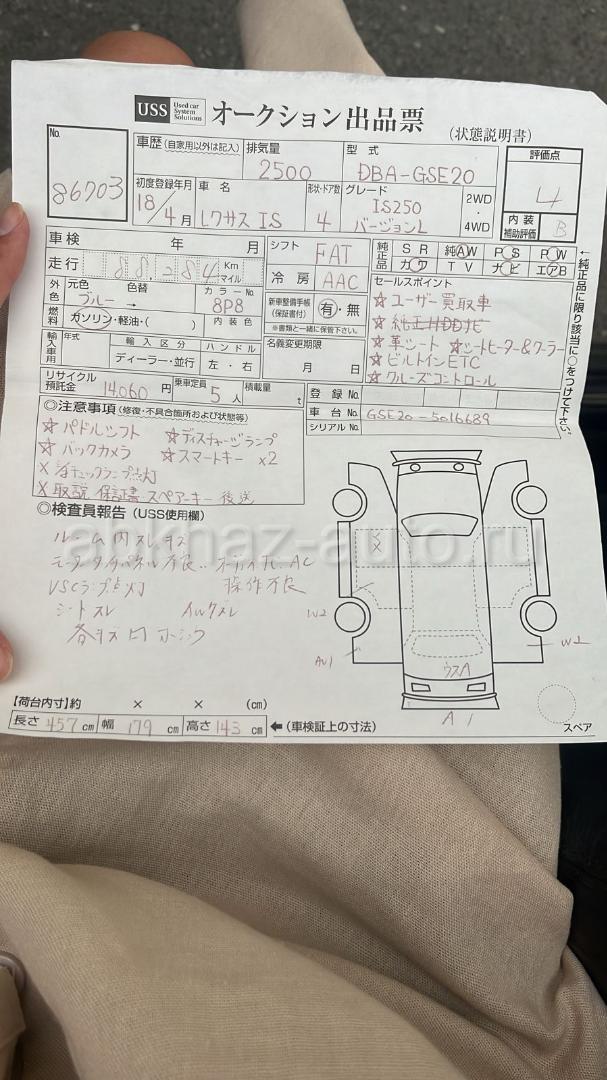 USS Used car System Solutions オークション 出品票 (状態説明書)
No. 86703
車歴 (自家用以外は記入) 排気量 2500 型式 DBA-GSE20
評価点 4
内装補助評価 B
初度登録年月 18/4月 車名 レクサス IS 形状・ドア数 4 グレード IS250 バージョンL 2WD・4WD
車検 年 月 シフト FAT
純正品 SR 純AW PS PW
カワ TV ナビ エアB
走行 88,284 Km マイル 冷房 AAC
←純正品に限り該当に○をつけて下さい。
外色 元色 ブルー → 色替 カラーNo. 8P8
新車整備手帳(保証書付) 有・無
※書類と一緒に保管下さい。
燃料 ガソリン・軽油・( ) 内装色
セールスポイント
☆ ユーザー買取車
☆ 純正HDDナビ
☆ 革シート ☆シートヒーター&クーラー
☆ ビルトインETC
☆ クルーズコントロール
輸入車用 年式 輸入区分 ハンドル
ディーラー・並行 左・右
名義変更期限
月 日
リサイクル預託金 14,060 円 乗車定員 5 人 積載量 t
登録No.
車台No. GSE20-5016689
シリアルNo.
◎注意事項 (修復・不具合箇所および状態等)
☆ パドルシフト ☆ ディスチャージランプ
☆ バックカメラ ☆ スマートキー ×2
チェックランプ点灯
× 取説 保証書 スペアーキー 後送
◎検査員報告 (USS使用欄)
ルーム内スレキズ
オーディオ、AC
VSCランプ点灯 操作不良
シートスレ
W2
W2
ウスA
A1
【荷台内寸】約 × × (cm)
長さ 457 cm 幅 179 cm 高さ 143 cm ←(車検証上の寸法)
スペア
ankhaz-auto.ru